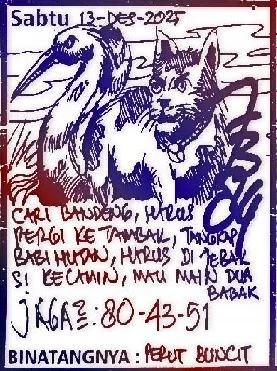 Sabtu 13-DES-2025
CARI BANDENG, HARUS
PERGI KE TAMBAK, TANGKAP
BABI HUTAN, HARUS DI JEBAK
SI KECAMIN, MAU MAIN DUA
BABAK
JAGA2: 80-43-51
BINATANGNYA : PERUT BUNCIT